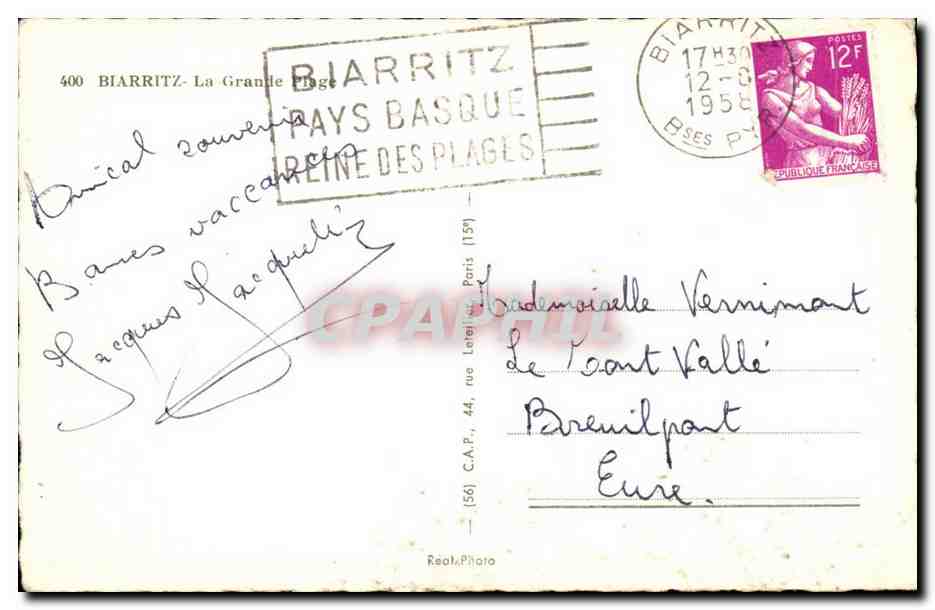 400 BIARRITZ - La Grande Plage
BIARRITZ
PAYS BASQUE
REINE DES PLAGES
BIARRITZ
17H30
12-8
1958
BSES PYR.
POSTES
12F
REPUBLIQUE FRANÇAISE
Amical souvenir
Bonnes vaccances
Jacques Jacquelin
(56) C.A.P., 44, rue Letellier, Paris (15e)
Mademoiselle Vernimont
Le Vallé
Breuilpont
Eure.
Real-Photo
CPAPHIL